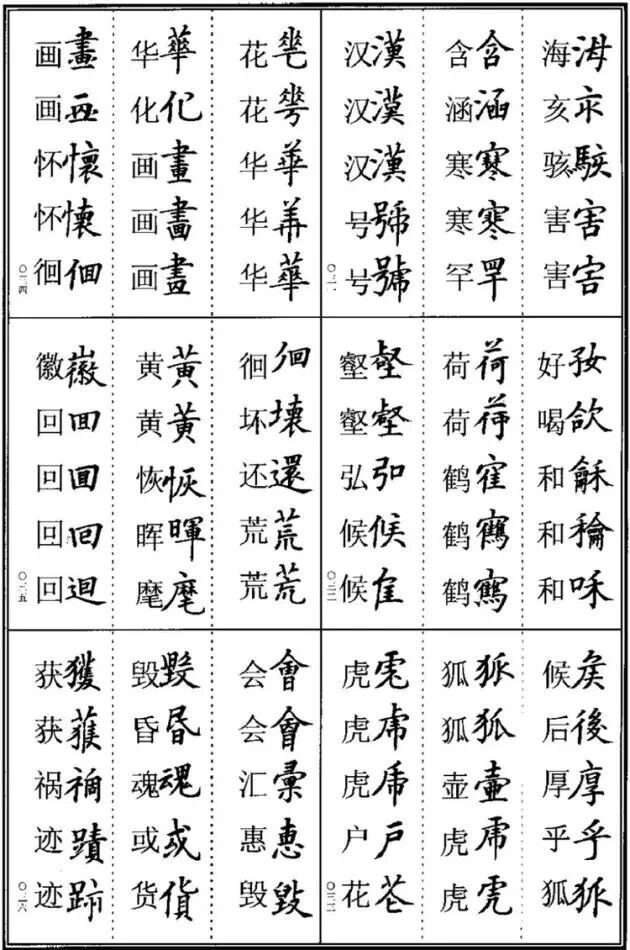 海海亥亥骇駭害害害害
含含涵涵寒寒寒寒罕罕
汉漢汉漢汉漢号號号號
〇二一
好好喝欱和龢和龢和咊
荷荷荷荷鹤寉鹤鶴鹤鶴
壑壑壑壑弘弘候候候
〇二二
候矦后後厚厚乎乎狐狐
狐狐狐狐壶壺虎虎虎虎
虎虎虎虎虎虎户戶花花
〇二三
花花花华華华華华華
华華化化画畫画畫画畫
画畫画画怀懷怀懷徊佪
〇二四
徊佪坏壞还還荒荒荒荒
黄黃黄黄恢恢晖暉麾麾
徽徽回囬回囬回回回迴
〇二五
会會会會汇彙惠惠毁毀
毁毀昏昬魂魂或或货貨
获獲获獲祸禍迹蹟迹跡
〇二六